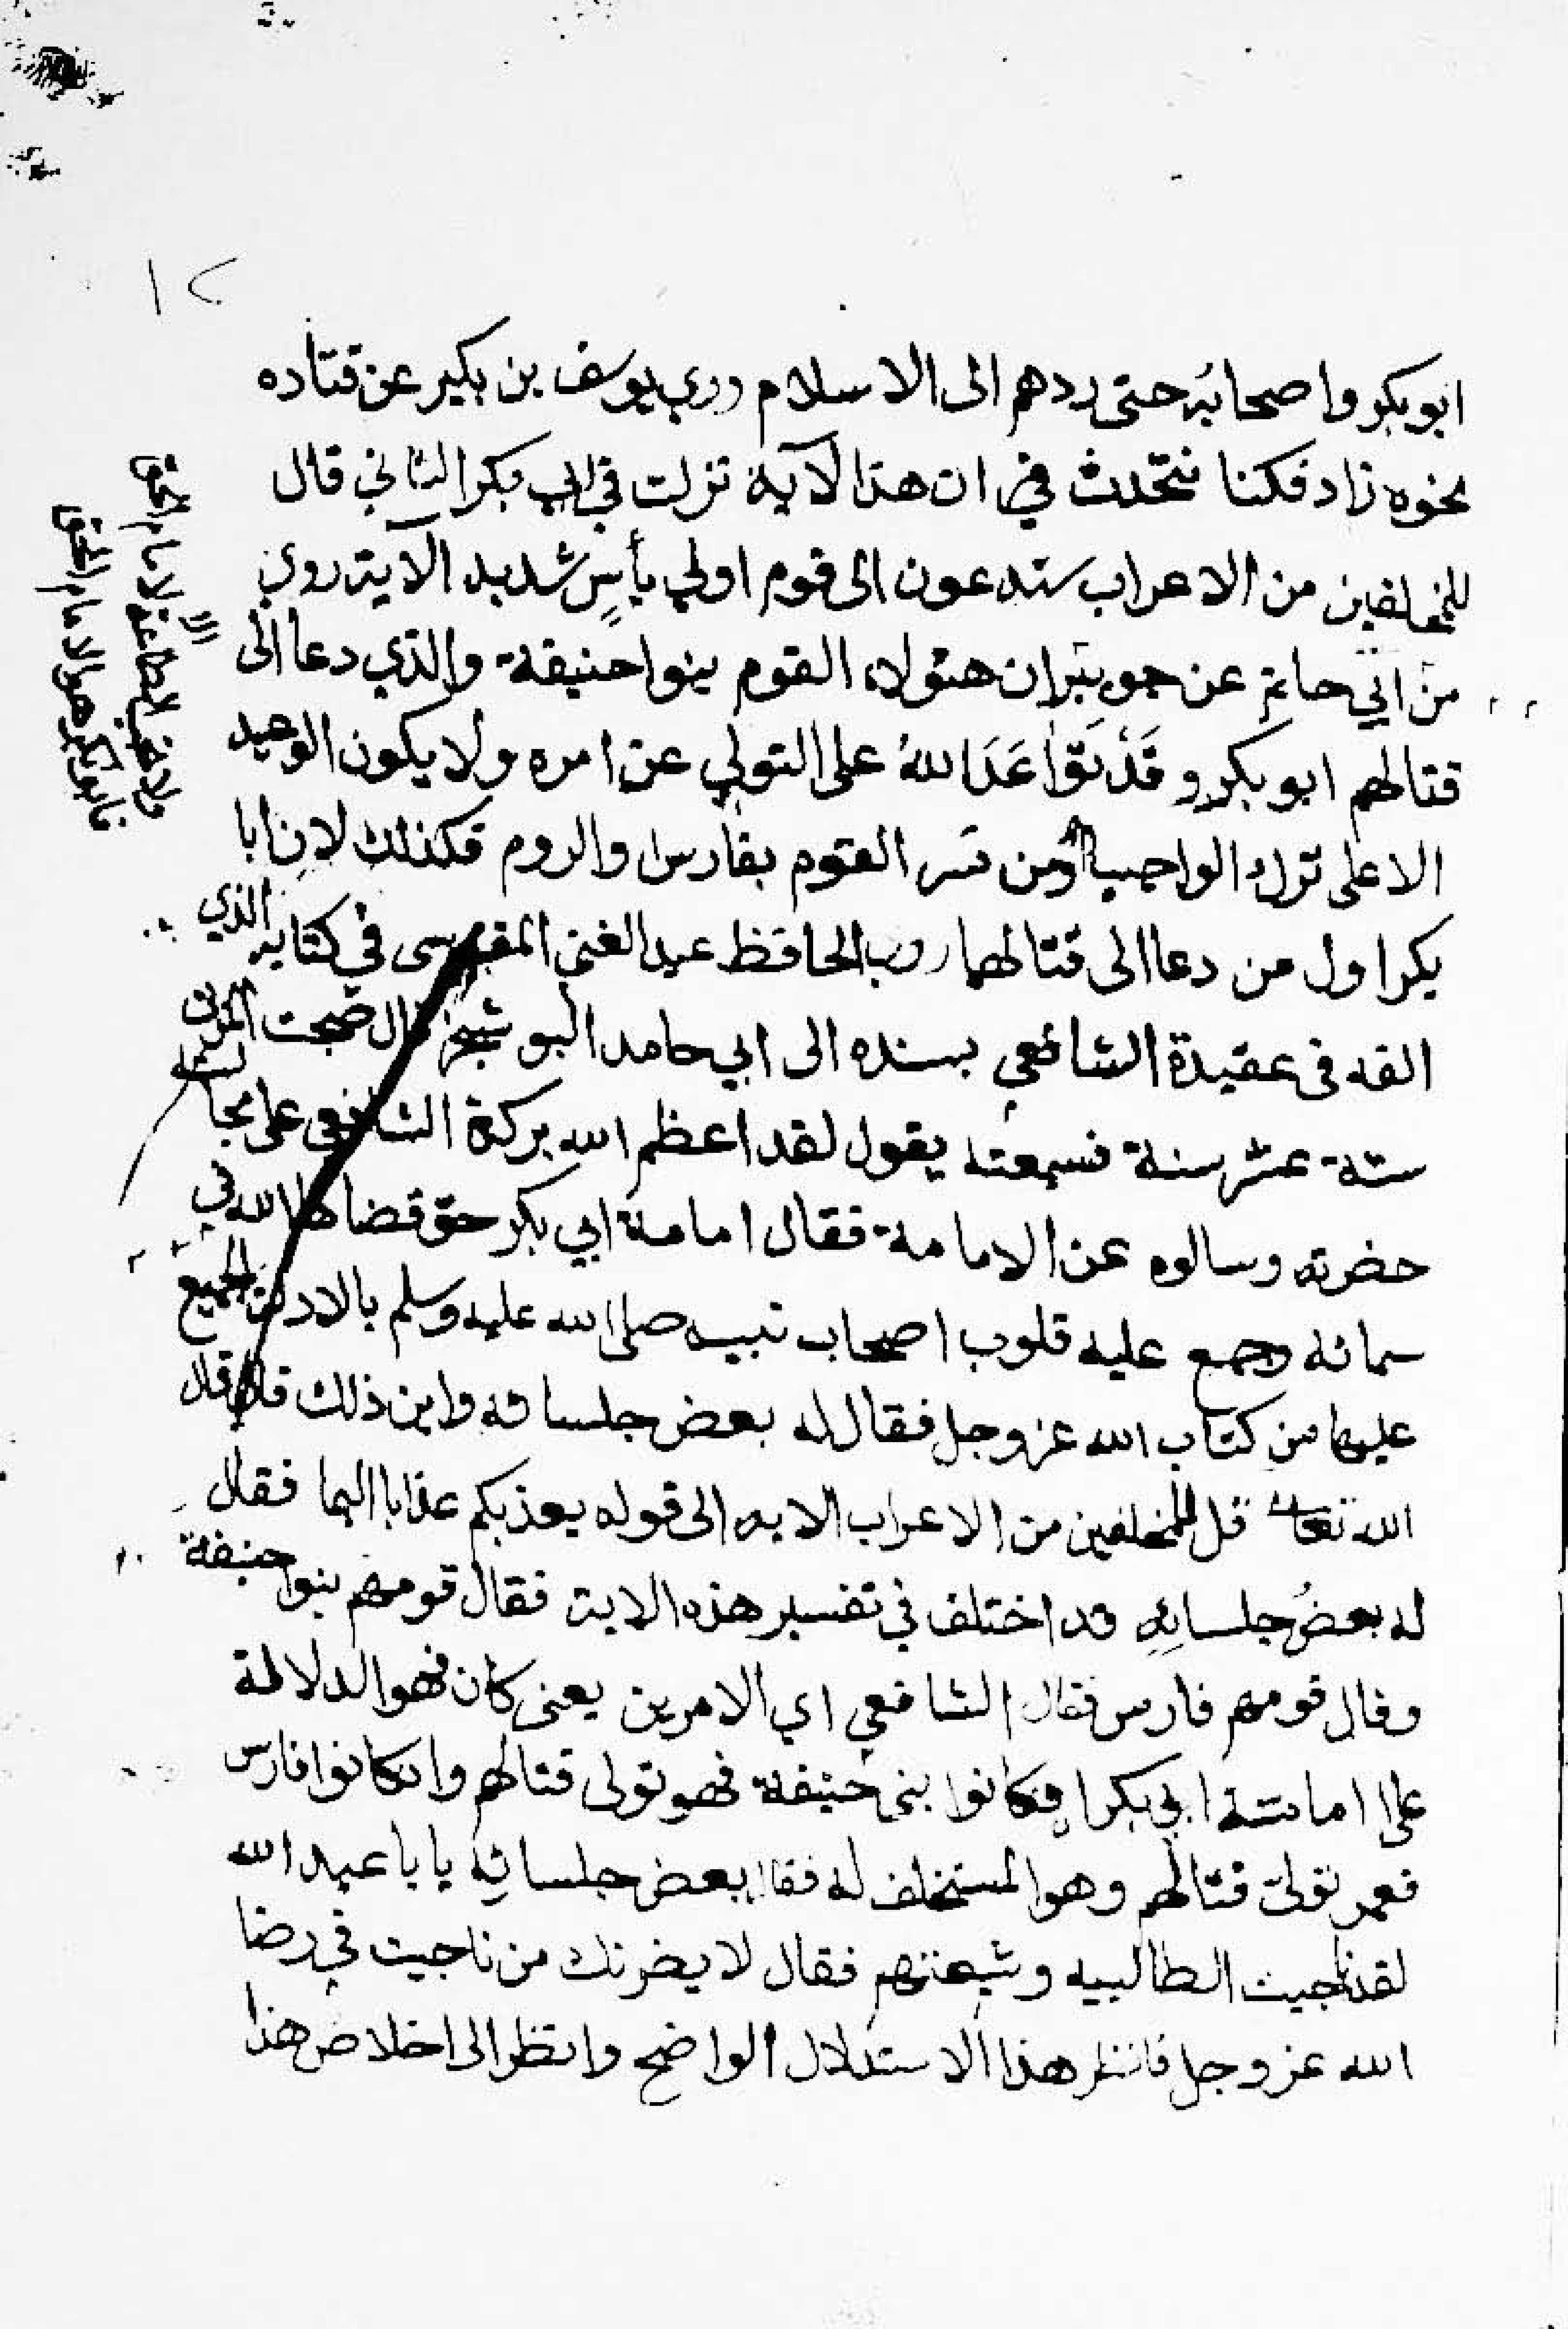 ١٢
ابوبكر واصحابه حتى ردهم الى الاسلام وروي يوسف بن بكير عن قتاده
نحوه زاد فكنا نتحدث ان هذا الآية نزلت في ابي بكر الثاني قال
للمخلفين من الاعراب ستدعون الى قوم اولي بأسٍ شديد الآية روي
من ابي حاتم عن جويبر ان هئولاء القوم بنوا حنيفة والذي دعا الى
قتالهم ابوبكر وقَدْ تَوَاعَدَ اللهُ على التولي عن امره ولا يكون الوعيد
الا على ترك الواجب ومن فسر القوم بفارس والروم فكذلك لان ابا
بكر اول من دعا الى قتالهما روي الحافظ عبد الغني المقدسى في كتابه الذي
الفه فى عقيدة الشافعي بسنده الى ابي حامد قال صحبت المزني
ستة عشر سنة فسمعته يقول لقد اعظم الله بركة الشافعي على مجالسته
حضرته وسالوه عن الامامة فقال امامة ابي بكر حق قضاها الله في
سمائه وجمع عليه قلوب اصحاب نبيه صلى الله عليه وسلم الجميع
عليها من كتاب الله عز وجل فقال له بعض جلسائه واين ذلك قال قال
الله تعالى قل للمخلفين من الاعراب الايه الى قوله يعذبكم عذابا اليما فقال
له بعضُ جلسائِهِ قد اختلف في تفسير هذه الاية فقال قومهم بنوا حنيفة
وقال قومهم فارس فقال الشافعي اي الامرين يعنى كان فهو الدلالة
على امامة ابي بكر ا فكانوا بنى حنيفة فهو تولى قتالهم وان كانوا فارس
فعمر تولى قتالهم وهو المستخلف له فقال بعض جلسائِه يا با عبد الله
لقد ناجيت الطالبيه وشيعتهم فقال لا يضرنك من ناجيت في رضا
الله عز وجل فانظر هذا الاستدلال الواضح وانظر الى اخلاص هذا
ولا تجب الطاعة الا لامام الحق
فابوبكر هو الامام الحق